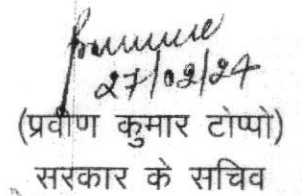 27/02/24
(प्रवीण कुमार टोप्पो)
सरकार के सचिव